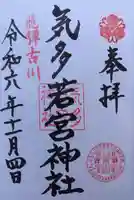 奉拝
飛騨古川
気多若宮神社
令和六年十一月四日